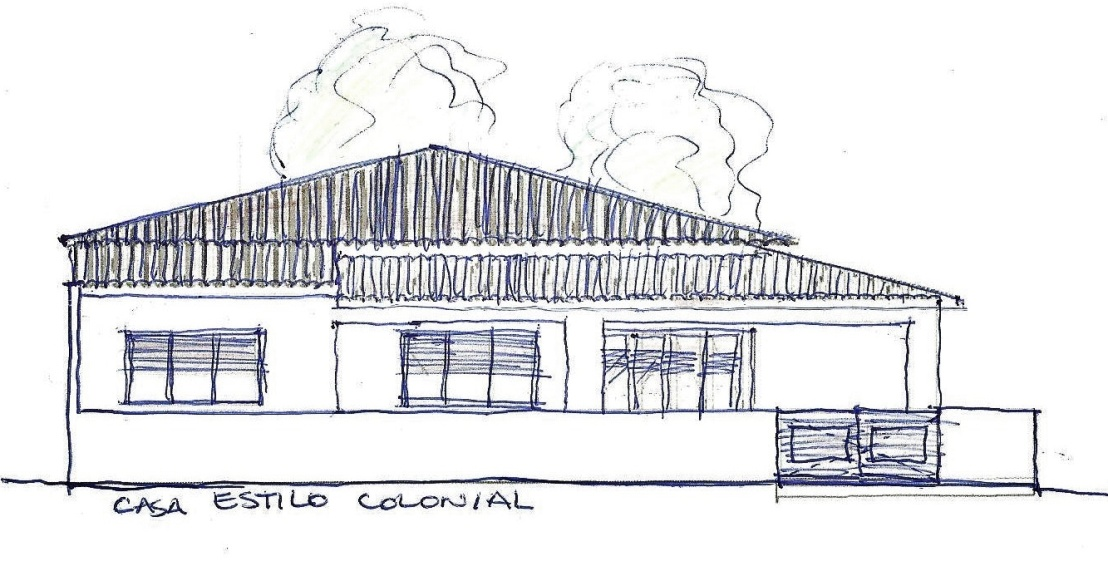 CASA ESTILO COLONIAL